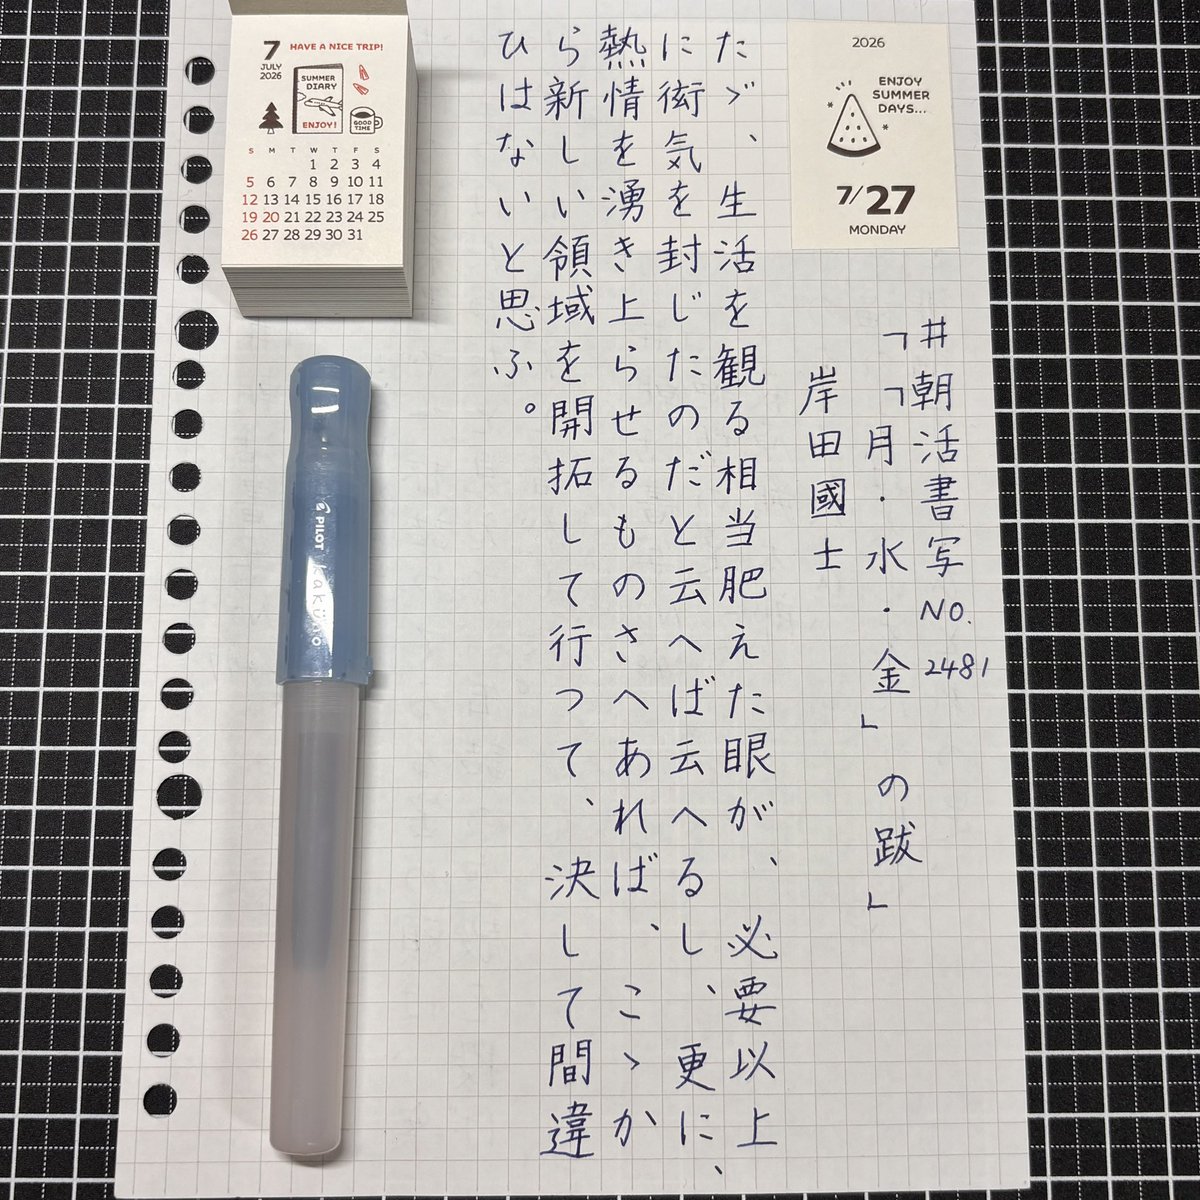 #朝活書写 NO. 2481
「「月・水・金」の跋」
岸田國士
たゞ、生活を観る相当肥えた眼が、必要以上
に衒気を封じたのだと云へば云へるし、更に、
熱情を湧き上らせるものさへあれば、こゝか
ら新しい領域を開拓して行つて、決して間違
ひはないと思ふ。
7
JULY
2026
HAVE A NICE TRIP!
SUMMER
DIARY
ENJOY!
GOOD
TIME
S M T W T F S
1 2 3 4
5 6 7 8 9 10 11
12 13 14 15 16 17 18
19 20 21 22 23 24 25
26 27 28 29 30 31
2026
ENJOY
SUMMER
DAYS...
7/27
MONDAY
PILOT
kaküno